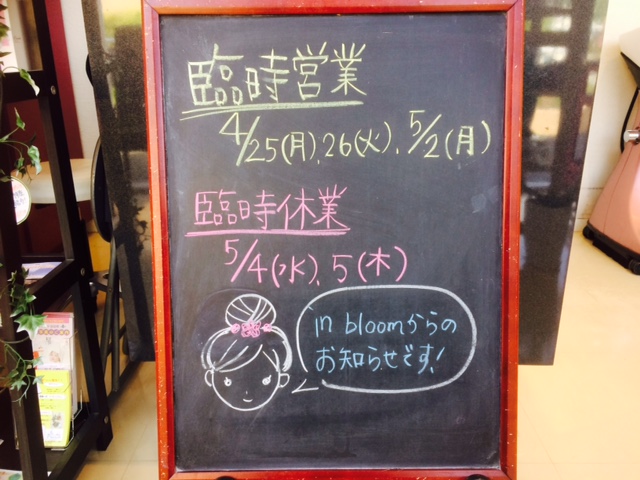 臨時営業
4/25(月)、26(火)、5/2(月)
臨時休業
5/4(水)、5(木)
in bloomからの
お知らせです!